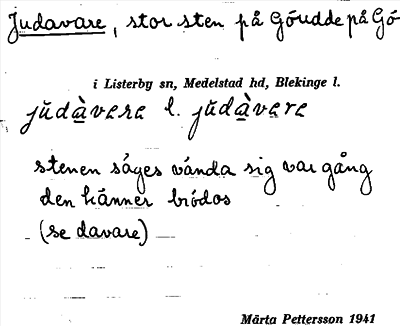 Judavare, stor sten på Göudde på Gö
i Listerby sn, Medelstad hd, Blekinge l.
jŭdàvere l. jŭdàvere
stenen säges vända sig var gång
den känner brödos
(se davare)
Märta Pettersson 1941